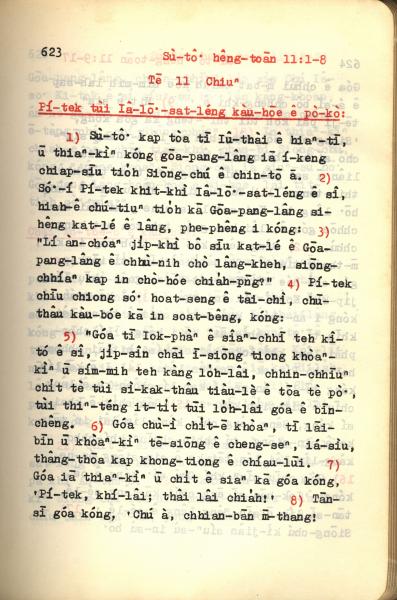 623
Sù-tô͘ hêng-toān 11:1-8
Tē 11 Chiuⁿ
Pí-tek tùi Iâ-lō͘-sat-léng kàu-hōe ê pò-kò:
1) Sù-tô͘ kap tòa tī Iû-thài ê hiaⁿ-tī,
ū thiaⁿ-kìⁿ kóng gōa-pang-lâng iā í-keng
chiap-siū tio̍h Siōng-chú ê chin-tō ā. 2)
Só͘-í Pí-tek khit-khì Iâ-lō͘-sat-léng ê sî,
hiah-ê chú-tiuⁿ tio̍h kā Gōa-pang-lâng si-
hêng kat-lé ê lâng, phe-phêng i kóng: 3)
"Lí àn-chóaⁿ ji̍p-khì bô siū kat-lé ê Gōa-
pang-lâng ê chhù-nih chò lâng-kheh, siōng-
chhíaⁿ kap in cho-hóe chia̍h-pn̄g?" 4) Pí-tek
chīu chiong só͘ hoat-seng ê tāi-chì, chū-
thâu kàu-bóe kā in soat-bêng, kóng:
5) "Góa tī Iok-phàⁿ ê siâⁿ-chhī teh kî-
tó ê sî, ji̍p-sîn chāi ī-siōng tiong khòaⁿ-
kìⁿ ū sím-mih teh kàng lo̍h-lâi, chhin-chhīuⁿ
chi̍t tè tùi sì-kak-thâu tiàu-lè ê tōa tè pò͘,
tùi thiⁿ-téng it-ti̍t tùi lo̍h-lâi góa ê bīn-
chêng. 6) Góa chù-ì chi̍t-ē khòaⁿ, tī lāi-
bīn ū khòaⁿ-kìⁿ tē-siōng ê cheng-seⁿ, iá-siù,
thâng-thōa kap khong-tiong ê chíau-lūi. 7)
Góa iā thiaⁿ-kìⁿ ū chi̍t ê siaⁿ kā góa kóng,
'Pí-tek, khí-lâi; thâi lâi chia̍h!' 8) Tān-
sī góa kóng, 'Chú à, chhian-bān m̄-thang!